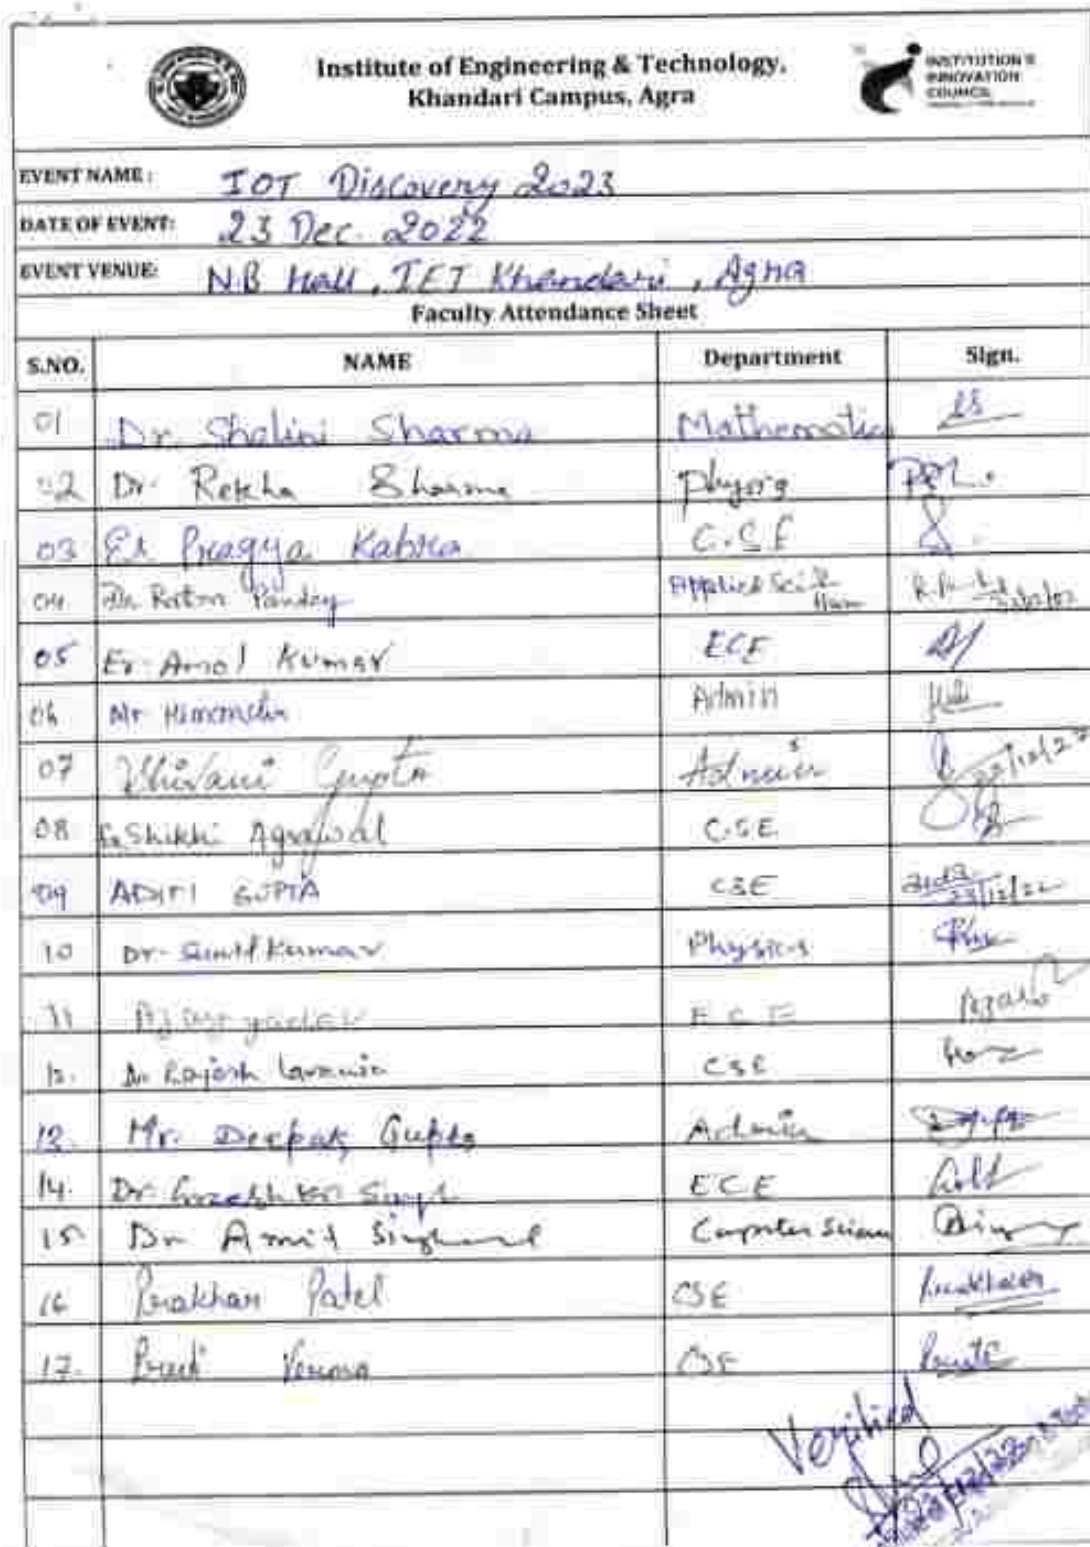 Institute of Engineering & Technology,
Khandari Campus, Agra
INSTITUTION'S
INNOVATION
COUNCIL
EVENT NAME : IOT Discovery 2023
DATE OF EVENT: 23 Dec. 2022
EVENT VENUE: N.B Hall, IET Khandari, Agra
Faculty Attendance Sheet
S.NO. NAME Department Sign.
01 Dr. Shalini Sharma Mathematics
02 Dr. Rekha Sharma Physics
03 Er. Pragya Kabra C.S.E
04 Dr. Ratna Pandey Applied Sci &
05 Er. Amol Kumar ECE
06 Mr Himanshu Admin
07 Shivani Gupta Admin 23/12/22
08 Er. Shikhi Agrawal C.S.E
09 ADITI GUPTA CSE 23/12/22
10 Dr. Sunil Kumar Physics
11 Ajay yadav E C E
12. Dr. Rajesh CSE
13. Mr. Deepak Gupta Admin
14. Dr. Singh ECE
15 Dr Amit Singhal Computer Science
16 Prakhar Patel CSE Prakhar
17. Verma CSE
Verified